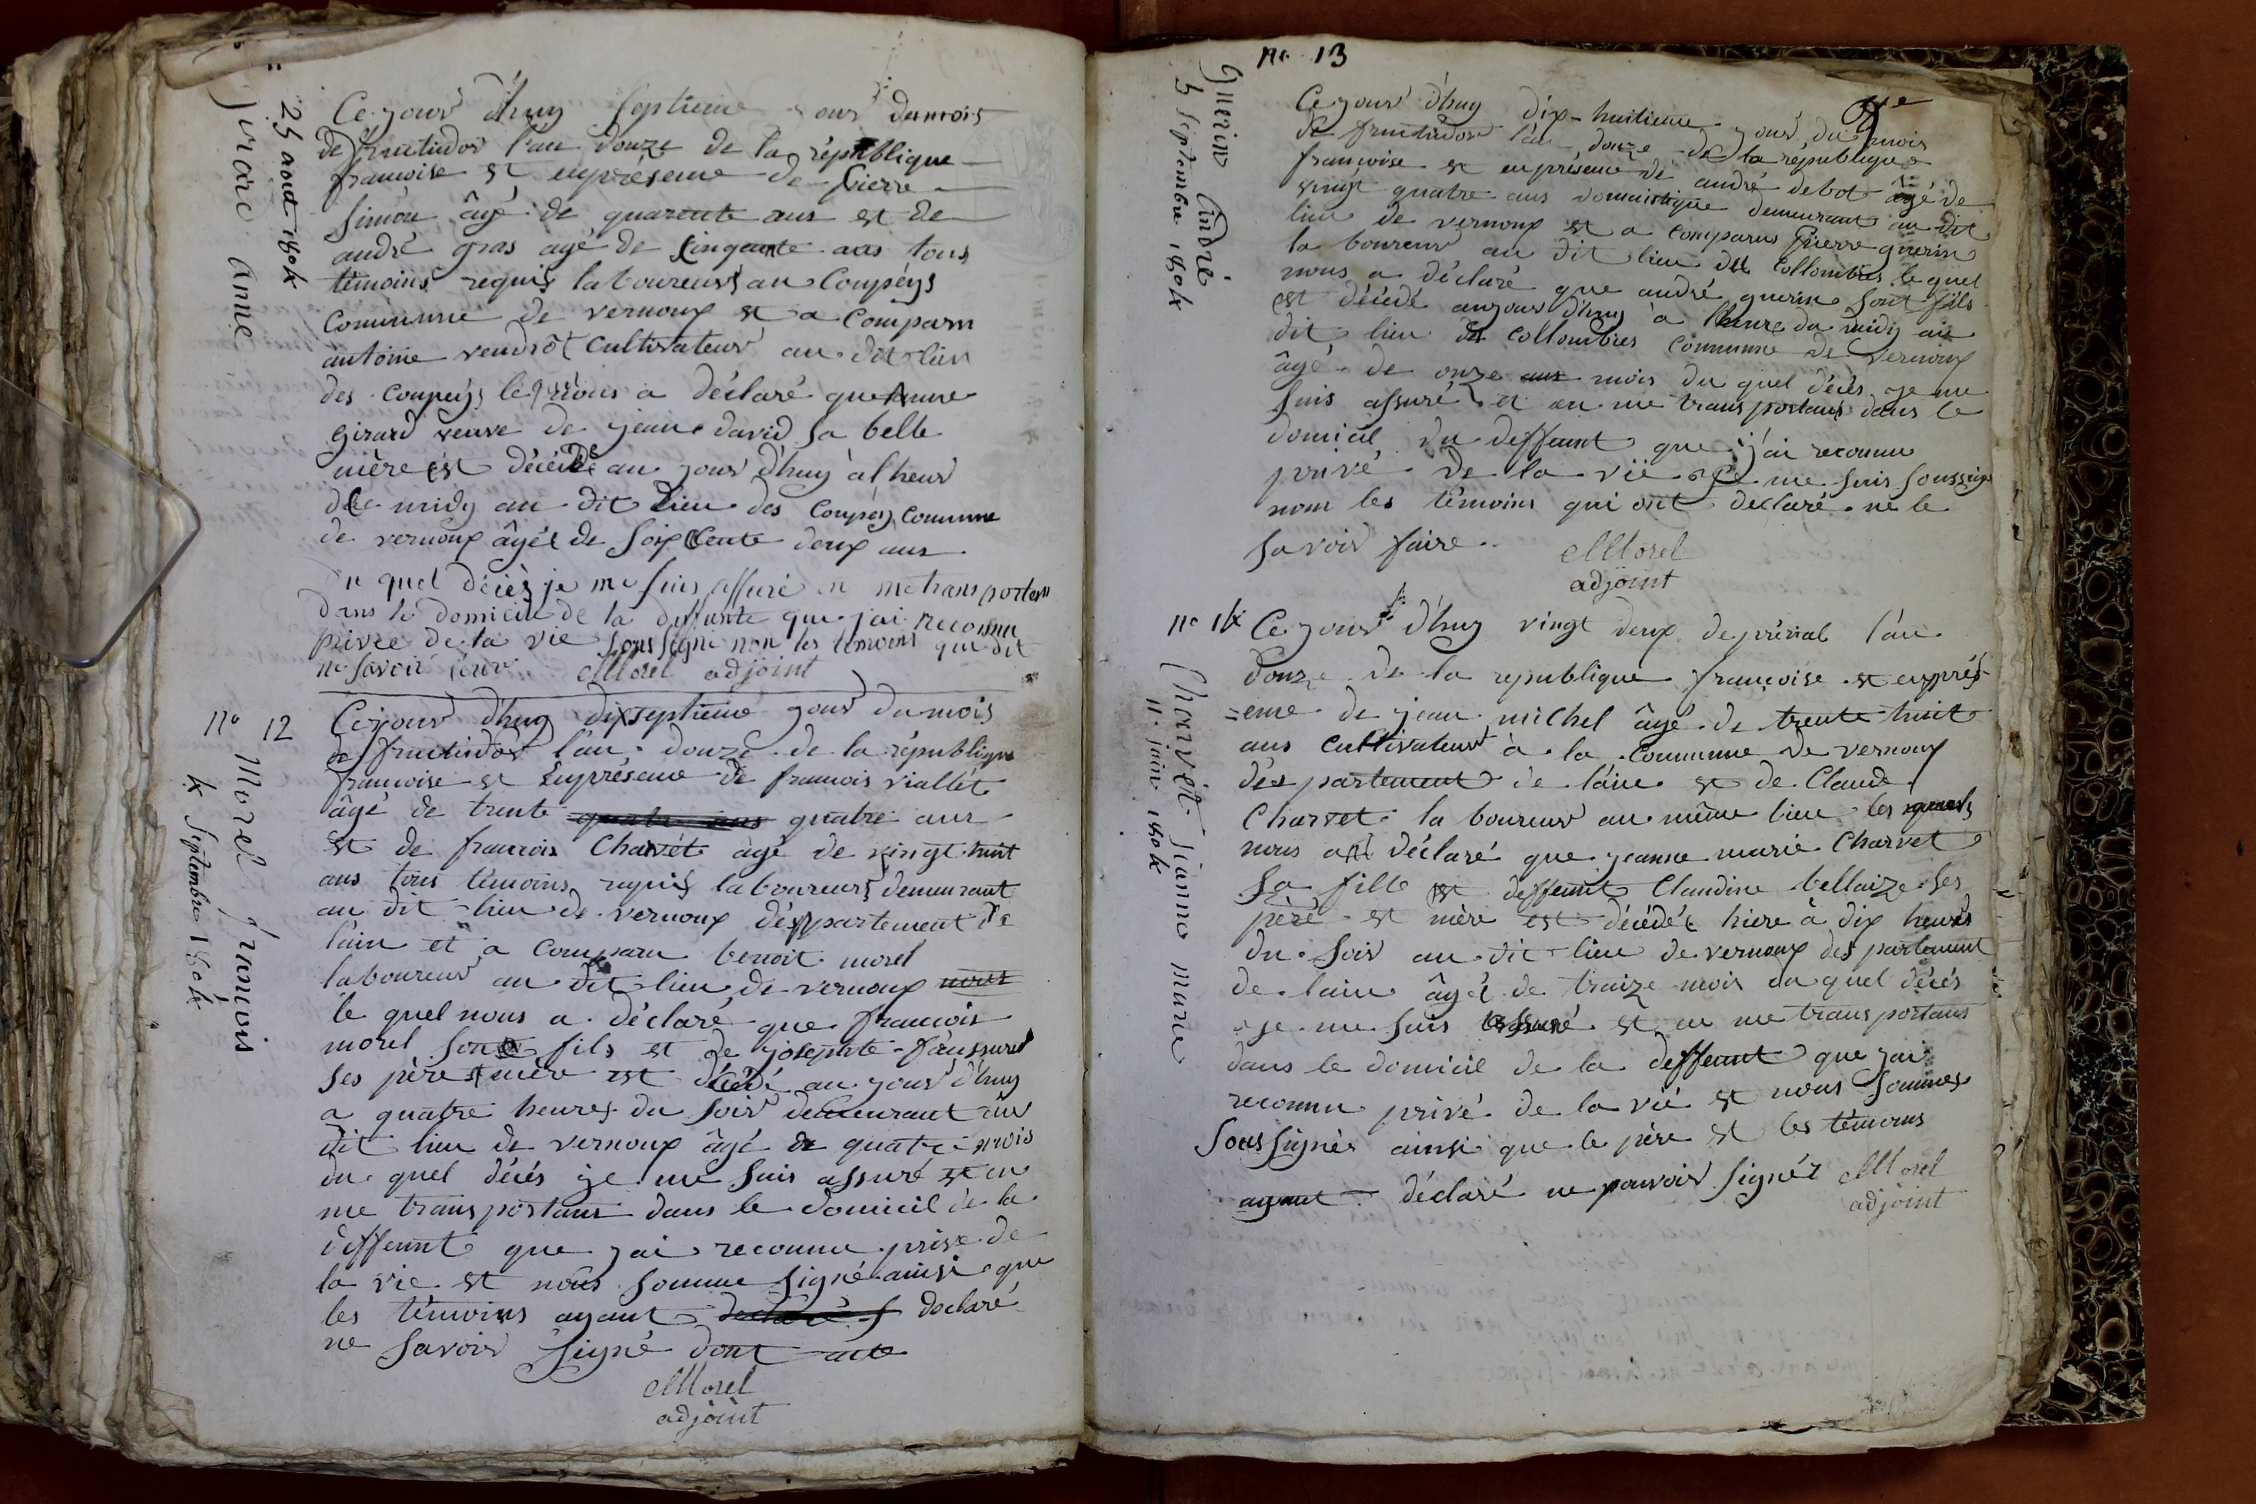 25 août 1804
Girard anne
Ce jour d'huy septieme jour du mois
de fructidor l'an douze de la république
francoise et en présence de pierre
simon âgé de quarente ans et de
andré gras agé de cinquante ans tous
témoins requis laboureurs au Coupéÿs
Commune de vernoux et a comparu
antoine vendrôt Cultivateur au dit lieu
des Coupeÿs le nous a déclaré que Anne
girard veuve de jean david sa belle
mère est décédé au jour d'huy à l'heur
de midy au dit Lieu des Coupeÿs Commune
de vernoux âgée de soixcente deux ans
du quel décès je me suis assuré en me transportan
dans le domicile de la defunte que j'ai reconnu
privee de la vie soussigné non les temoins qui dit
ne savoir
Morel adjoint
N° 12
Morel francois
4 Septembre 1804
Ce jour d'huy dixseptieme jour du mois
de fructidor l'an douze de la république
francoise et en présence de francois viallet
âgé de trente quatre ans quatre ans
et de francois Charvét âgé de vingt huit
ans tous témoins requis laboureurs demeurant
au dit lieu de vernoux déspartement de
l'ain et a comparu benoit morel
laboureur au dit lieu de vernoux
le quel nous a déclaré que francois
morel son fils et de josephte
ses père et mère est décédé au jour d'huy
a quatre heures du soir demeurant au
dit lieu de vernoux âgé de quatre mois
du quel décés je me suis assuré et en
me transportant dans le domicil de la
deffeunt que j'ai reconnu prive de
la vie et nous somme signé ainsi que
les témoins ayant déclaré
ne savoir signé dont acte
Morel
adjoint
N° 13
Guerin André
5 Septembre 1804
Ce jour d'huy dix-huitieme jour du mois
de fructidor l'an douze de la république
francoise et en présence de andré debot âgé de
vingt quatre ans domaistique demeurant au dit
lieu de vernoux et a comparus Pierre guerin
laboureur au dit lieu des Collombies le quel
nous a déclaré que andré guerin sont fils
est décédé aujourd'huy à l'heure du midy au
dit lieu de Collombies Commune de vernoux
âgé de onze ans mois du quel décés je me
suis assuré et en me transportant dans le
domicil du deffeunt que j'ai reconnu
privé de la vië et je me suis soussigné
nom les témoins qui ont declaré ne le
savoir faire
Morel
adjoint
N° 14
Charvet jeanne marie
11 juin 1804
Ce jour d'huy vingt deux de prérial l'an
douze de la republique françoise et en prés-
=ence de jean michel âgé de trente huit
ans Cultivateur à la Commune de vernoux
déspartement de l'ain et de Claude
Charvet laboureur au même lieu les quels
nous ont déclaré que jeanne marie Charvet
sa fille et deffeunt Claudine bellaize ses
père et mère est décédét hiere à dix heures
du soir au dit lieu de vernoux despartement
de l'ain âgé de traize mois du quel décés
je me suis assuré et en me transportant
dans le domicil de la deffeunt que j'ai
reconnu privé de la vië et nous sommes
soussignés ainsi que le père et les témoins
ayant déclaré ne pouvoir signér
Morel
adjoint